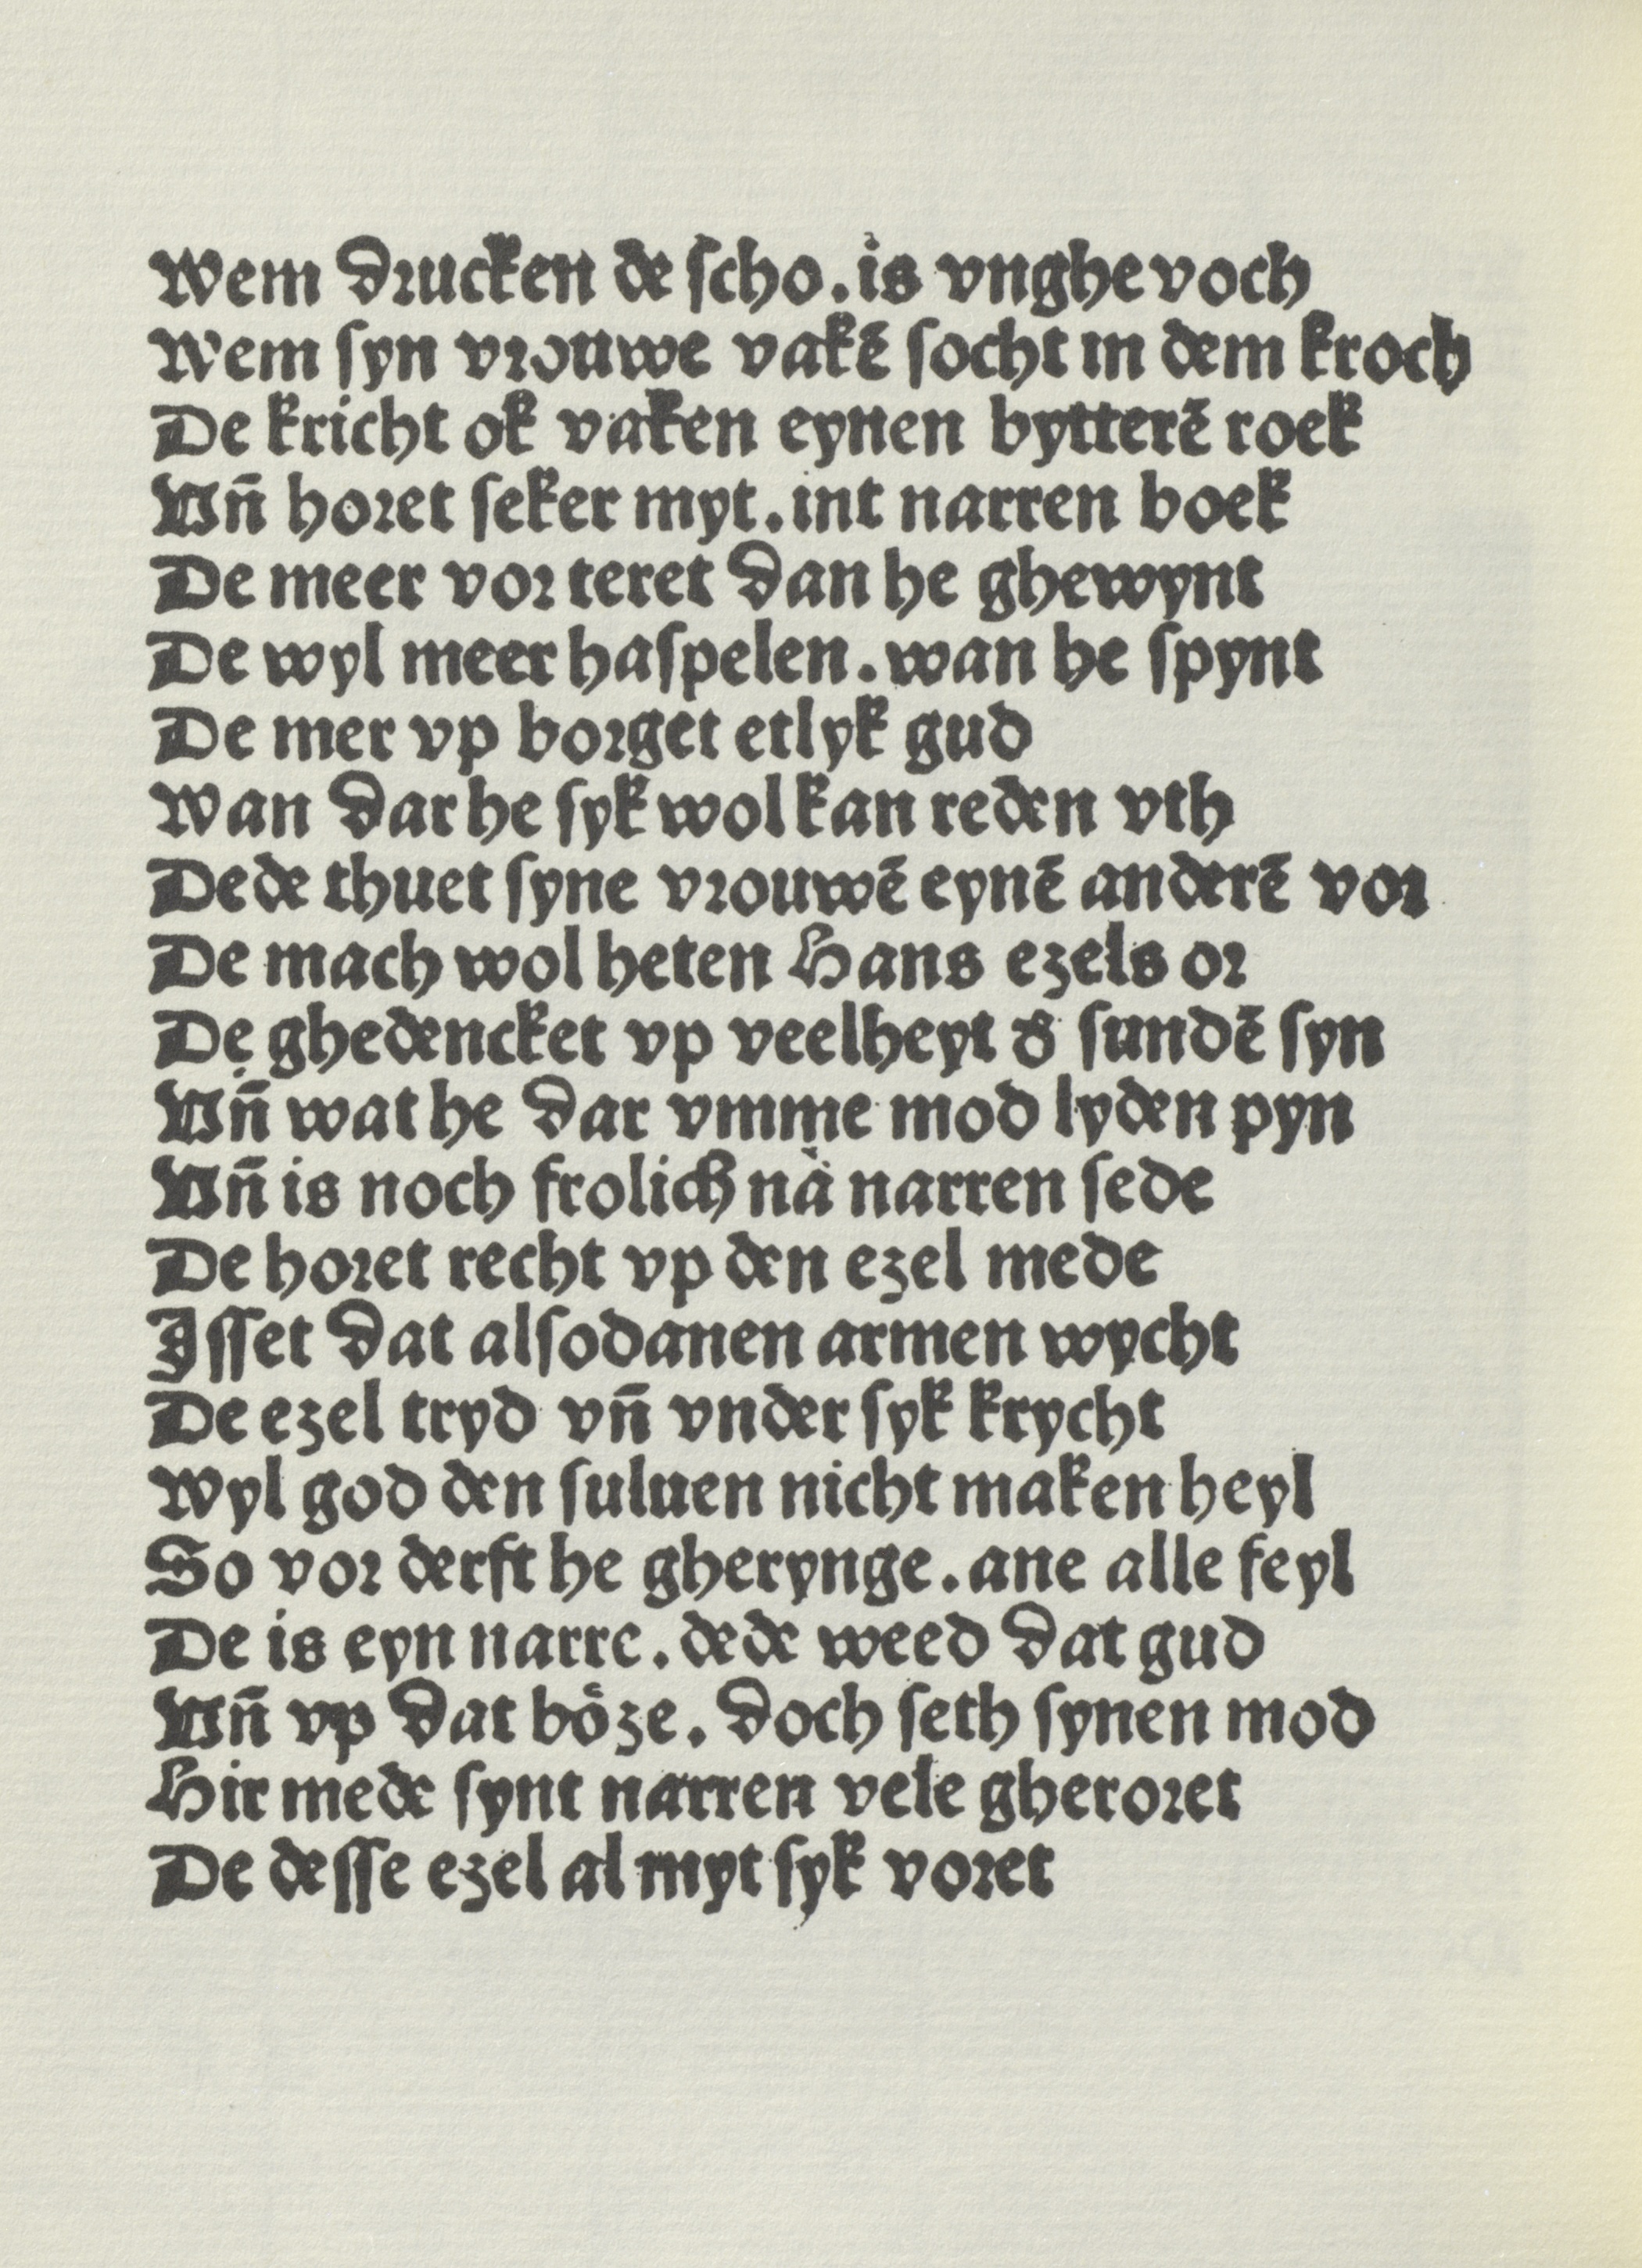 Wem drucken de ſcho. is vnghevoch
Wem ſyn vrouwe vakē ſocht in dem kroch
De kricht ok vaken eynen bytterē roek
Vn̄ horet ſeker myt. int narren boek
De meer vor teret dan he ghewynt
De wyl meer haſpelen. wan he ſpynt
De mer vp borget etlyk gud
Wan dar he ſyk wol kan reden vth
Dede thuet ſyne vrouwē eynē anderē vor
De mach wol heten Hans ezels or
De ghedencket vp veelheyt d' ſundē ſyn
Vn̄ wat he dar vmme mod lyden pyn
Vn̄ is noch frolich nȧ narren ſede
De horet recht vp den ezel mede
Iſſet dat alſodanen armen wycht
De ezel tryd vn̄ vnder ſyk krycht
Wyl god den ſuluen nicht maken heyl
So vor derft he gherynge. ane alle feyl
De is eyn narre. dede weed dat gud
Vn̄ vp dat boͤze. doch ſeth ſynen mod
Hir mede ſynt narren vele gheroret
De deſſe ezel al myt ſyk voret